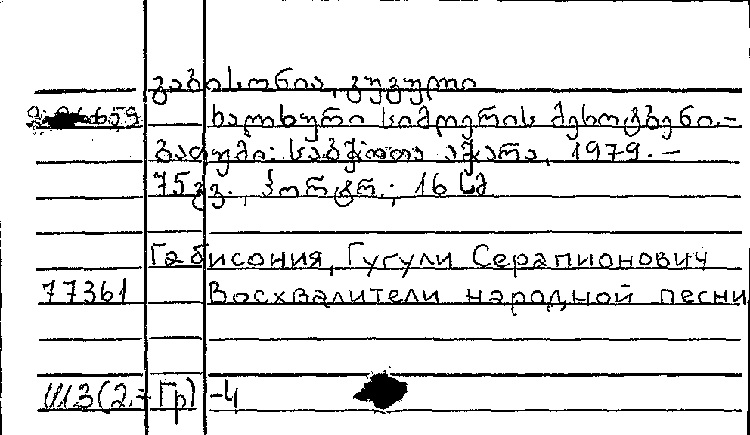 გაბისონია, გუგული
ხალხური სიმღერის მეხოტბენი.-
ბათუმი: საბჭოთა აჭარა, 1979.-
75გვ., პორტრ.; 16 სმ
Габисония, Гугули Серапионович
77361 Восхвалители народной песни
Щ3(2=Гр)-4